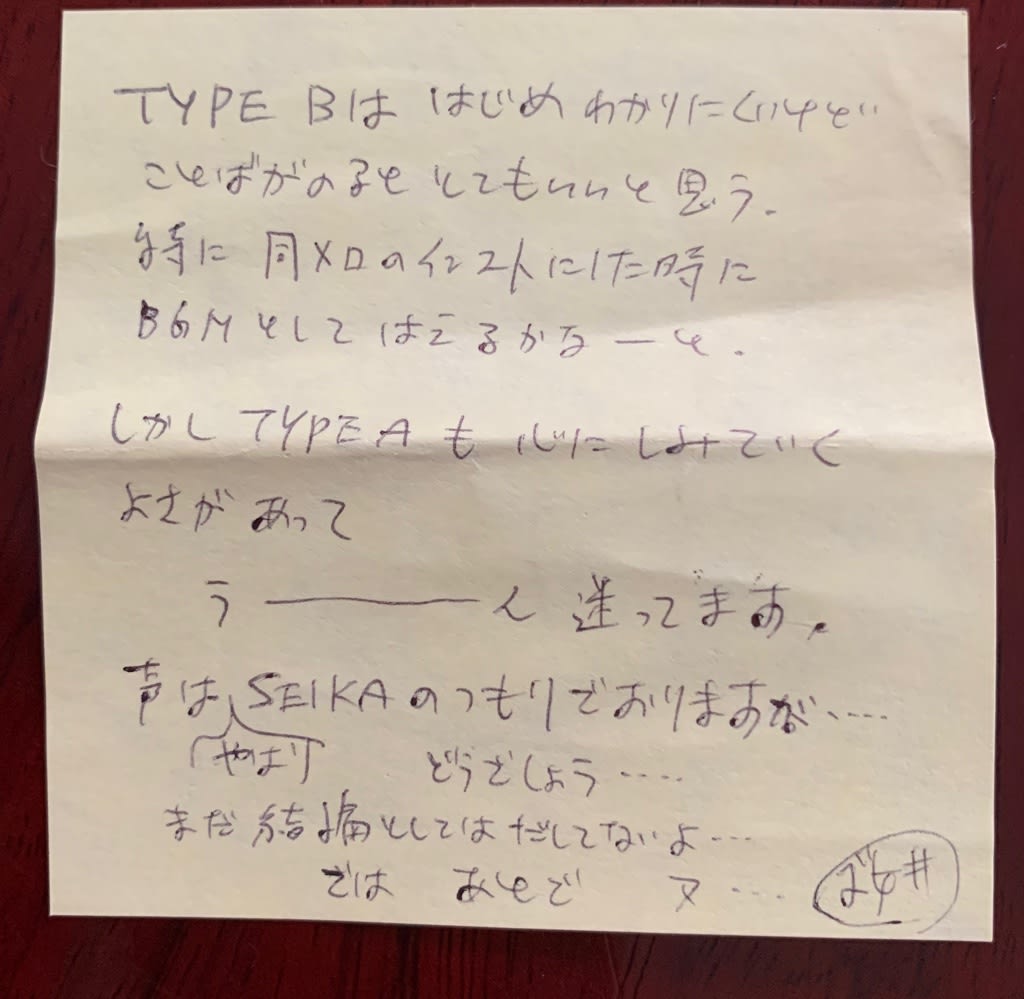 TYPE Bは はじめ わかりにくいけど
ことばがのると とてもいいと思う.
特に 同メロのインストにした時に
BGMとしてはえるかなーと.
しかし TYPE A も 心にしみていく
よさが あって
う———ん 迷ってます.
声は SEIKA のつもりでおりますが....
やはり どうでしょう....
まだ 結論としては だしてないよ...
では あとで 又 ....